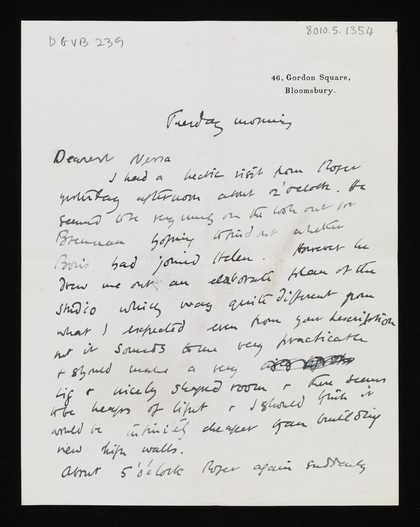 DGVB 239
8010.5.1354
46, Gordon Square,
Bloomsbury.
Tuesday morning
Dearest Nessa
I had a hectic visit from Roger
yesterday afternoon about 2 o'clock. He
seemed to be very much on the look out for
Brennan hoping to find out whether
Boris had joined Helen. However he
drew me out an elaborate plan of the
studio which was quite different from
what I expected even from your description
but it sounds to me very practicable
& should make a very
big & nicely shaped room & there seems
to be heaps of light & I should think it
would be infinitely cheaper than building
new high walls.
About 5 o'clock Roger again suddenly